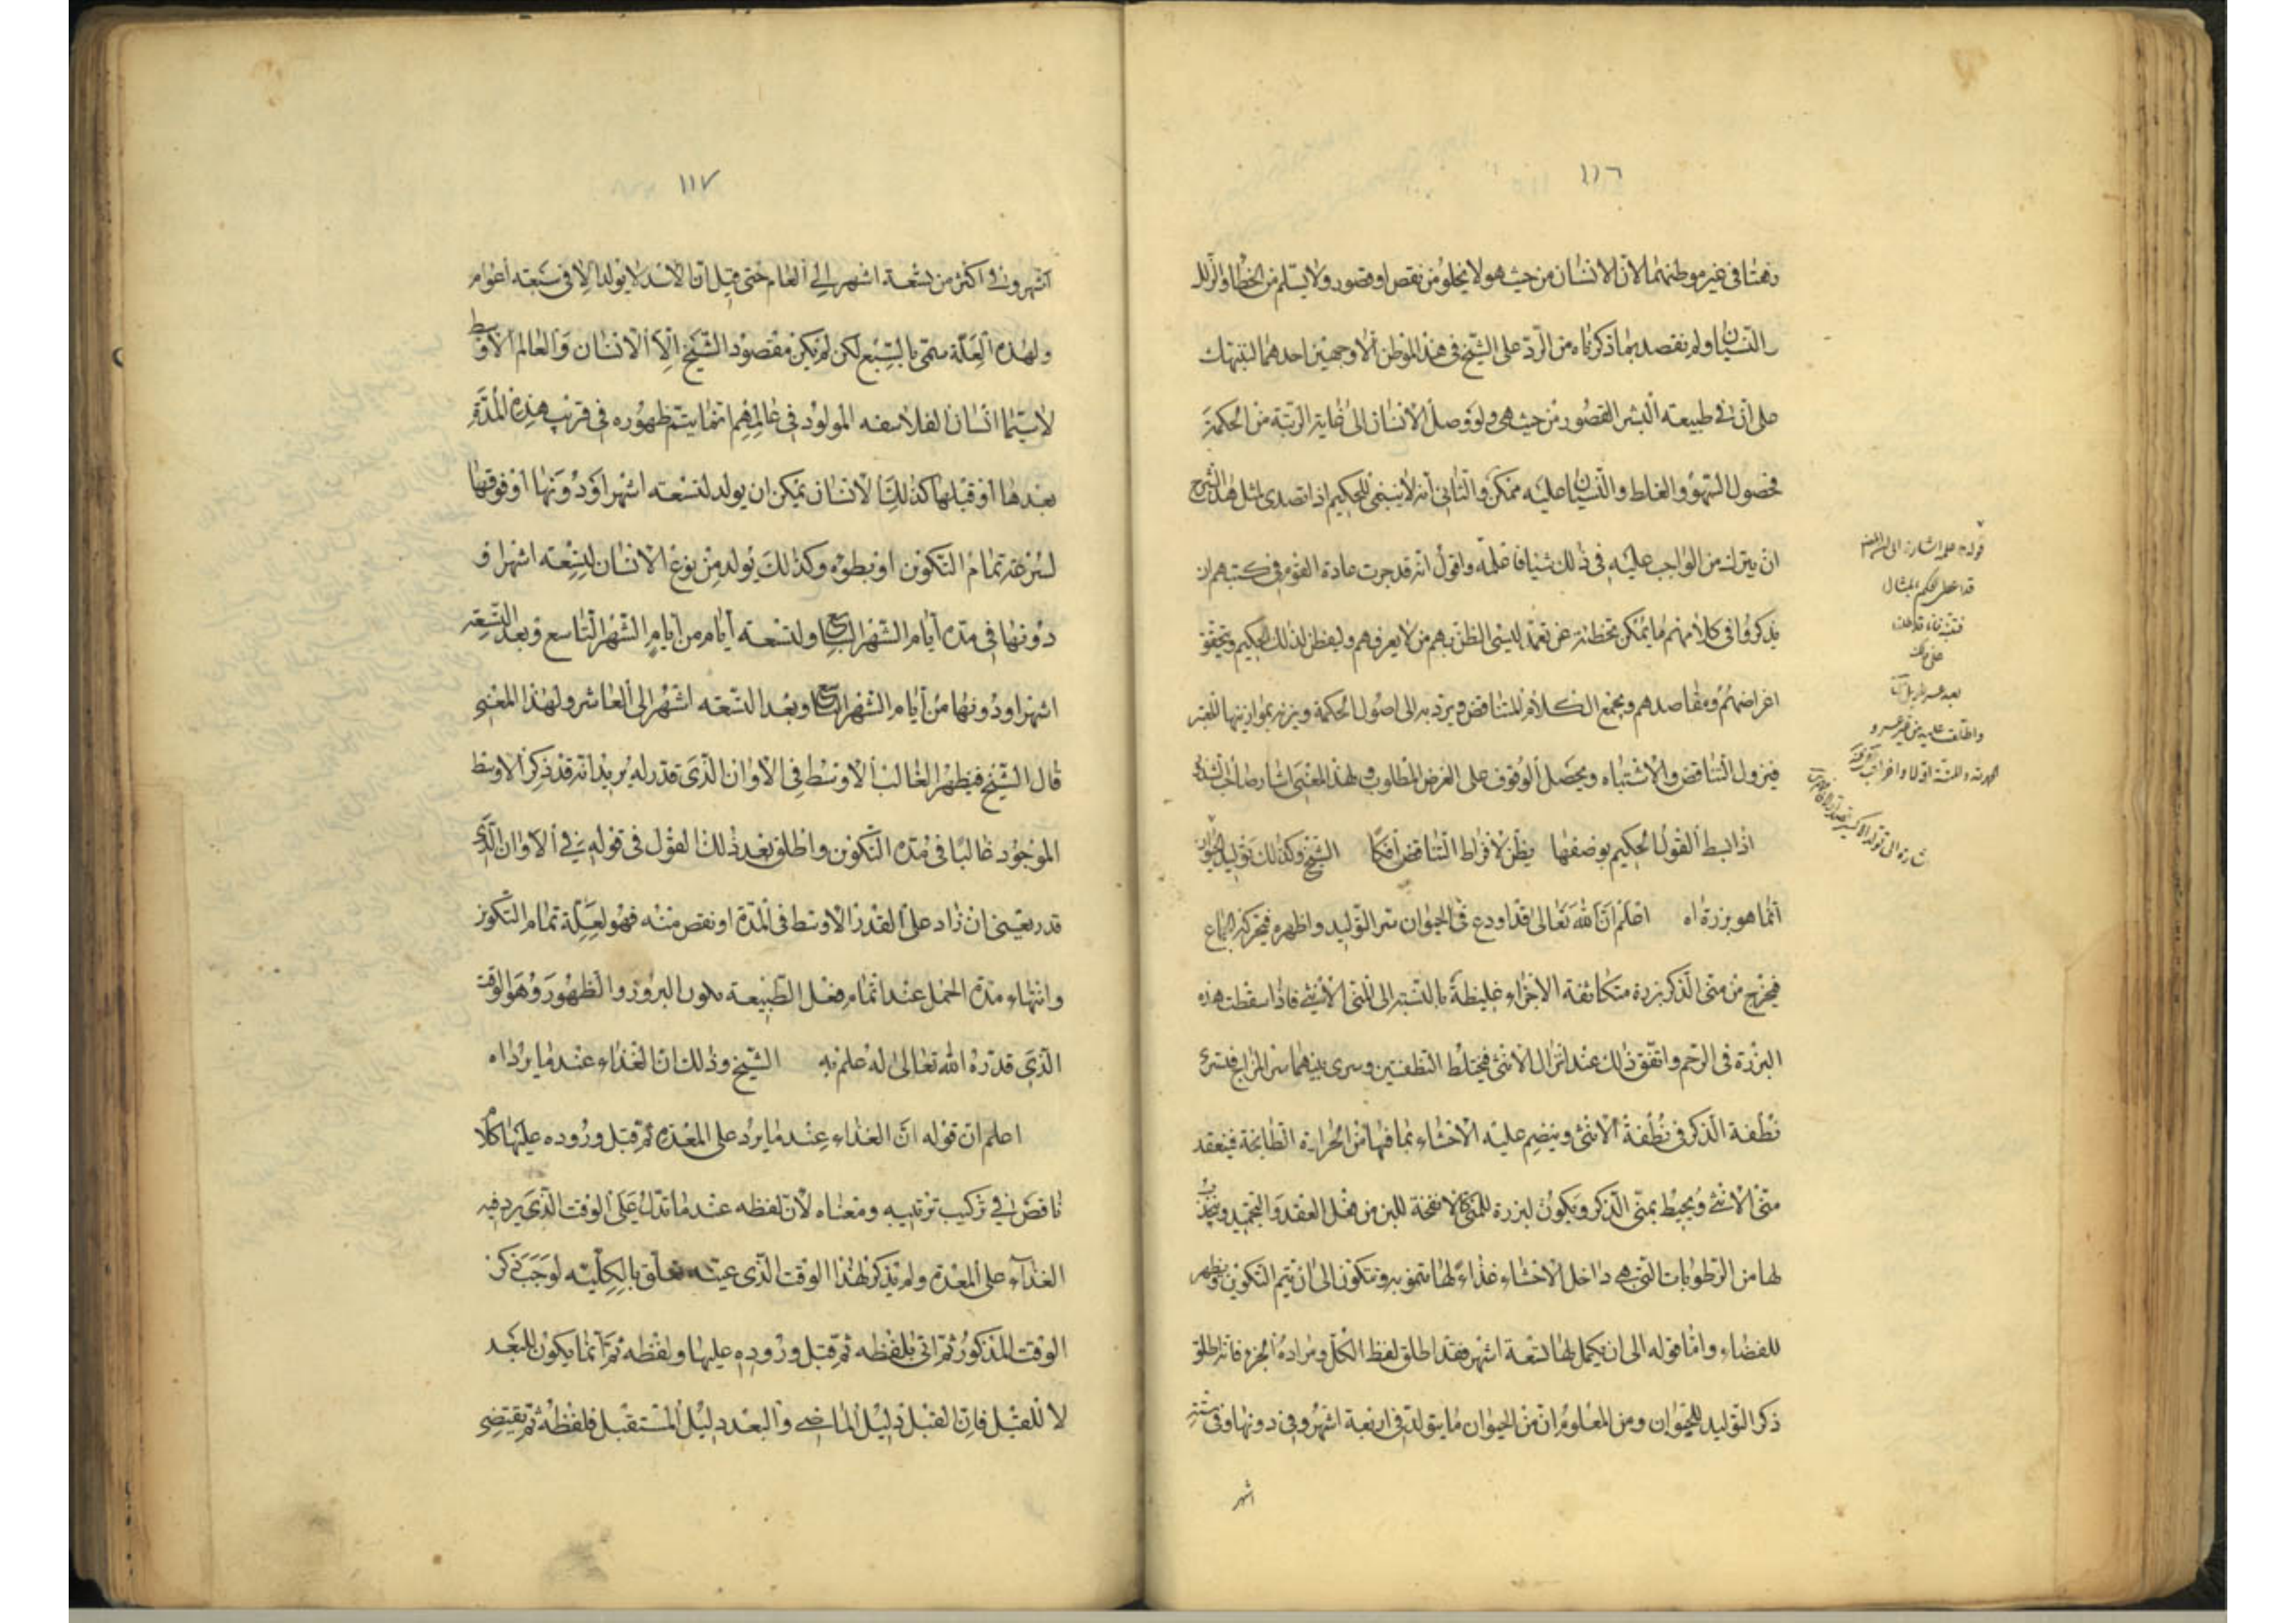 ١١٦
دهتا في غير موطنهما لان الانسان من حيث هو لا يخلو من نقص او قصور ولا يسلم من الخطا والزلل
والنسيان ولم نقصد بما ذكرناه من الرد على الشيخ في هذا الموطن الا وجهين احدهما لتنبيهك
على ان في طبيعة البشر القصور من حيث هي ولو وصل الانسان الى غاية الرتبة من الحكمة
فحصول السهو والغلط والنسيان عليه ممكن والثاني انه لا ينبغي للحكيم اذا تصدى لمثل هذا الشرح
ان يترك من الواجب عليه في ذلك شيئا قاعلمه واقول انه قد جرت عادة القوم في كتبهم ان
يذكروا في كلامهم ما يمكن تخطئته عن تعمد ليسئ الظن بهم من لا يعرفهم وليفطن لذلك الحكيم ويتحقق
اغراضهم ومقاصدهم ويجمع الكلام المتناقض ويرد به الى اصول الحكمة ويزنه بموازينها
فيزول التناقض والاشتباه ويحصل الوقوف على الغرض المطلوب ولهذا المعنى اشار صاحب الشذور
اذا بسط القول الحكيم بوصفها يظن لافراط التناقض افكا الشيخ وكذلك توليد الحيوان
انما هو بزرة اه اعلم ان الله تعالى قد اودع في الحيوان سر التوليد واظهره فيحركه الجماع
فيخرج من منى الذكر بزرة متكاثفة الاجزاء غليظة بالنسبة الى المنى الانثى فاذا سقطت هذه
البزرة في الرحم واتفق ذلك عند انزال الانثى فيختلط النطفتين وسرى بينهما سر المزاج فتسرى
نطفة الذكر في نطفة الانثى وينضم عليه الاحشاء بما فيها من الحرارة الطابخة فينعقد
منى الانثى ويحيط بمنى الذكر ويكون لبزرة للمنى كالانفحة للبن من فعل العقد والتجميد ويجذب
لها من الرطوبات التي هي داخل الاحشاء غذاء لها تنمو به وتتكون الى ان يتم التكوين ويظهر
للفضاء واما قوله الى ان يكمل لها تسعة اشهر فقد اطلق لفظ الكل ومراده الجزء فانه اطلق
ذكر التوليد للحيوان ومن المعلوم ان من الحيوان ما يتولد في اربعة اشهر وفي دونها وفي ستة
اشهر
قوله على اشارة الى
على ذلك
١١٧
اشهر وفي اكثر من تسعة اشهر الى العام حتى قيل ان الاسد لا يولد الا في سبعة اعوام
ولهذه العلة سمى بالسبع لكن لم يكن مقصود الشيخ الا الانسان والعالم الاوسط
لا سيما انسان الفلاسفه المولود في عالمهم انما يتم ظهوره في قرب هذه المدة
بعدها او قبلها كذلك الانسان يمكن ان يولد لتسعه اشهر او دونها او فوقها
لسرعة تمام التكوين او بطوه وكذلك يولد من نوع الانسان لتسعه اشهر او
دونها في مدة ايام الشهر السابع ولتسعه أيام من أيام الشهر التاسع وبعد التسعة
اشهر او دونها من أيام الشهر التاسع وبعد التسعه اشهر الى العاشر ولهذا المعنى
قال الشيخ فيظهر الغالب الاوسط في الاوان الذي قدر له يريد انه قد ذكر الاوسط
الموجود غالبا في مدة التكوين واطلق بعد ذلك القول في قوله في الاوان الذي
قدر يعني ان زاد على القدر الاوسط في المدة او نقص منه فهو لعلة تمام التكوين
وانتهاء مدة الحمل عند اتمام فعل الطبيعة يكون البروز والظهور وهو الوقت
الذي قدره الله تعالى له علم به الشيخ وذلك ان الغذاء عند ما يرد اه
اعلم ان قوله ان الغذاء عند ما يرد على المعدة ثم قبل وروده عليها كلام
ناقص في تركيب ترتيبه ومعناه لان لفظه عند ما تدل على الوقت الذي يرد فيه
الغذاء على المعدة ولم يذكر لهذا الوقت الذي عينه تعلق بالكلية لوجب ذكر
الوقت المذكور ثم اتى بلفظه ثم قبل وروده عليها ولفظه ثم انما يكون للبعد
لا للقبل فان القبل دليل الماضى والبعد دليل المستقبل فلفظه ثم يقتضي